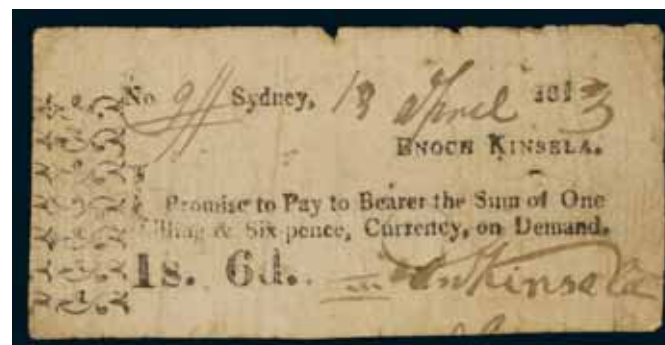 No Sydney, 18 April 1813
ENOCH KINSELA.
Promise to Pay to Bearer the Sum of One
Shilling & Six-pence, Currency, on Demand.
1s. 6d. Kinsela